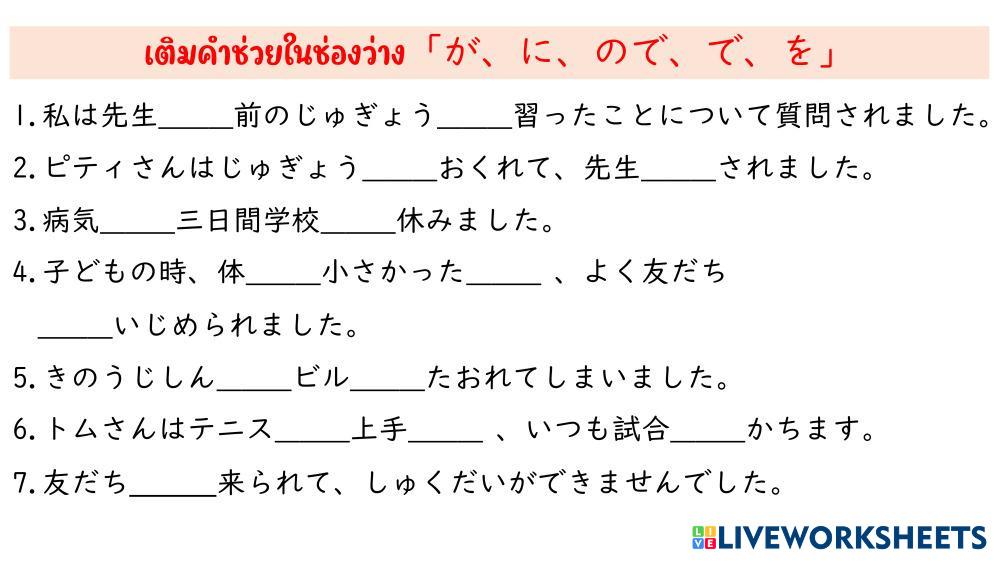 เติมคำช่วยในช่องว่าง「が、に、ので、で、を」
1. 私は先生_____前のじゅぎょう_____習ったことについて質問されました。
2. ピティさんはじゅぎょう_____おくれて、先生_____されました。
3. 病気_____三日間学校_____休みました。
4. 子どもの時、体_____小さかった_____ 、よく友だち
_____いじめられました。
5. きのうじしん_____ビル_____たおれてしまいました。
6. トムさんはテニス_____上手_____ 、いつも試合_____かちます。
7. 友だち______来られて、しゅくだいができませんでした。
LIVE LIVEWORKSHEETS